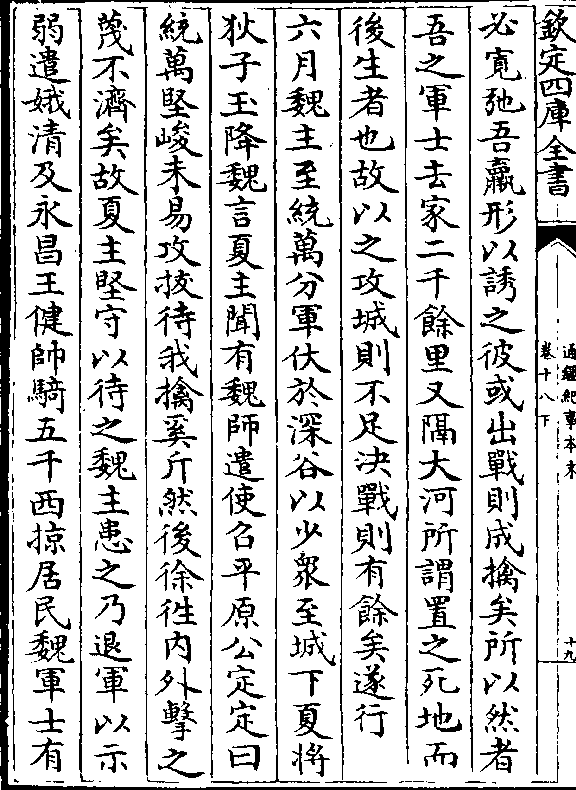 欽定四庫全書
通鑑紀事本末
卷十八下
十九
必寛弛吾羸形以誘之彼或出戰則成擒矣所以然者
吾之軍士去家二千餘里又隔大河所謂置之死地而
後生者也故以之攻城則不足決戰則有餘矣遂行
六月魏主至統萬分軍伏於深谷以少衆至城下夏將
狄子玉降魏言夏主聞有魏師遣使召平原公定定曰
統萬堅峻未易攻拔待我擒奚斤然後徐徃内外擊之
蔑不濟矣故夏主堅守以待之魏主患之乃退軍以示
弱遣娥清及永昌王健帥騎五千西掠居民魏軍士有